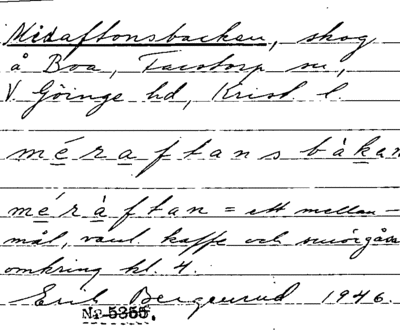 Midaftonsbacken, skog
å Boa, Farstorp sn,
V Göinge hd, Krist. l.
méraftansbàkan
méràftan = ett mellan-
mål, vanl. kaffe och smörgås
omkring kl. 4.
Erik Bergenrud 1946.
No 5355.